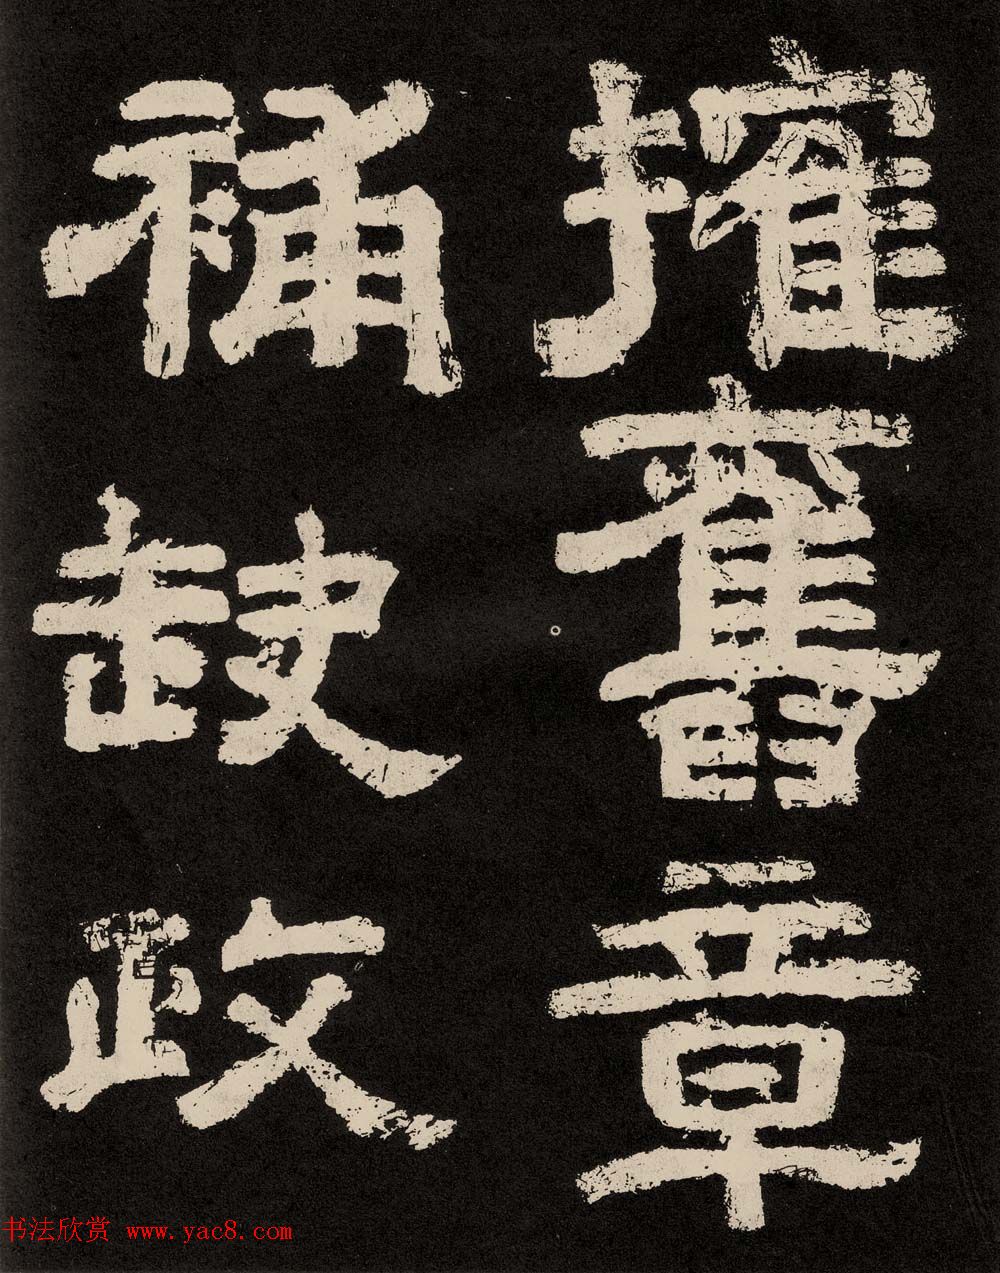 搉舊章
補缺政
书法欣赏 www.yac8.com